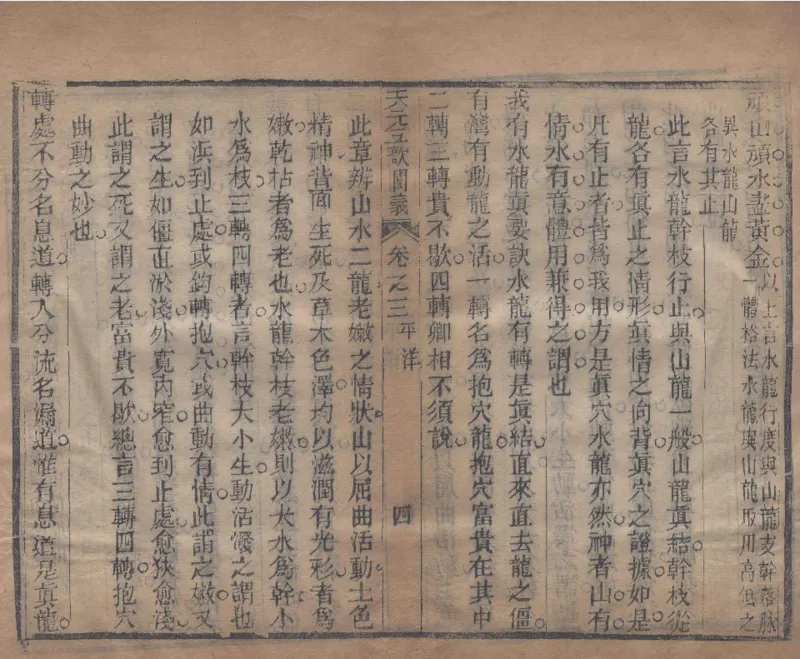 頑山頑水盡黃金以上言水龍行度與山龍支幹落脉一體格法水龍與山龍取用高低之
異水龍山龍
各有其止
此言水龍幹枝行止與山龍一般山龍眞結幹枝從
龍各有眞止之情形眞情之向背眞穴之證據如是
凡有止者皆爲我用方是眞穴水龍亦然神者山有
情水有意體用兼得之謂也
我有水龍眞要訣水龍有轉是眞結直來直去龍之僵
有灣有動龍之活一轉名爲抱穴龍抱穴富貴在其中
二轉三轉貴不歇四轉卿相不須說
天元五歌闡義 卷之三 平洋 四
此章辨山水二龍老嫩之情狀山以屈曲活動土色
精神背面生死及草木色澤均以滋潤有光彩者爲
嫩乾枯者爲老也水龍幹枝老嫩則以大水爲幹小
水爲枝三轉四轉者言幹枝大小生動活潑之謂也
如浜到止處或鈎轉抱穴或曲動有情此謂之嫩又
謂之生如僵直淤淺外寬內窄愈到止處愈狹愈淺
此謂之死又謂之老富貴不歇總言三轉四轉抱穴
曲動之妙也
轉處不分名息道轉入分流名漏道惟有息道是眞龍